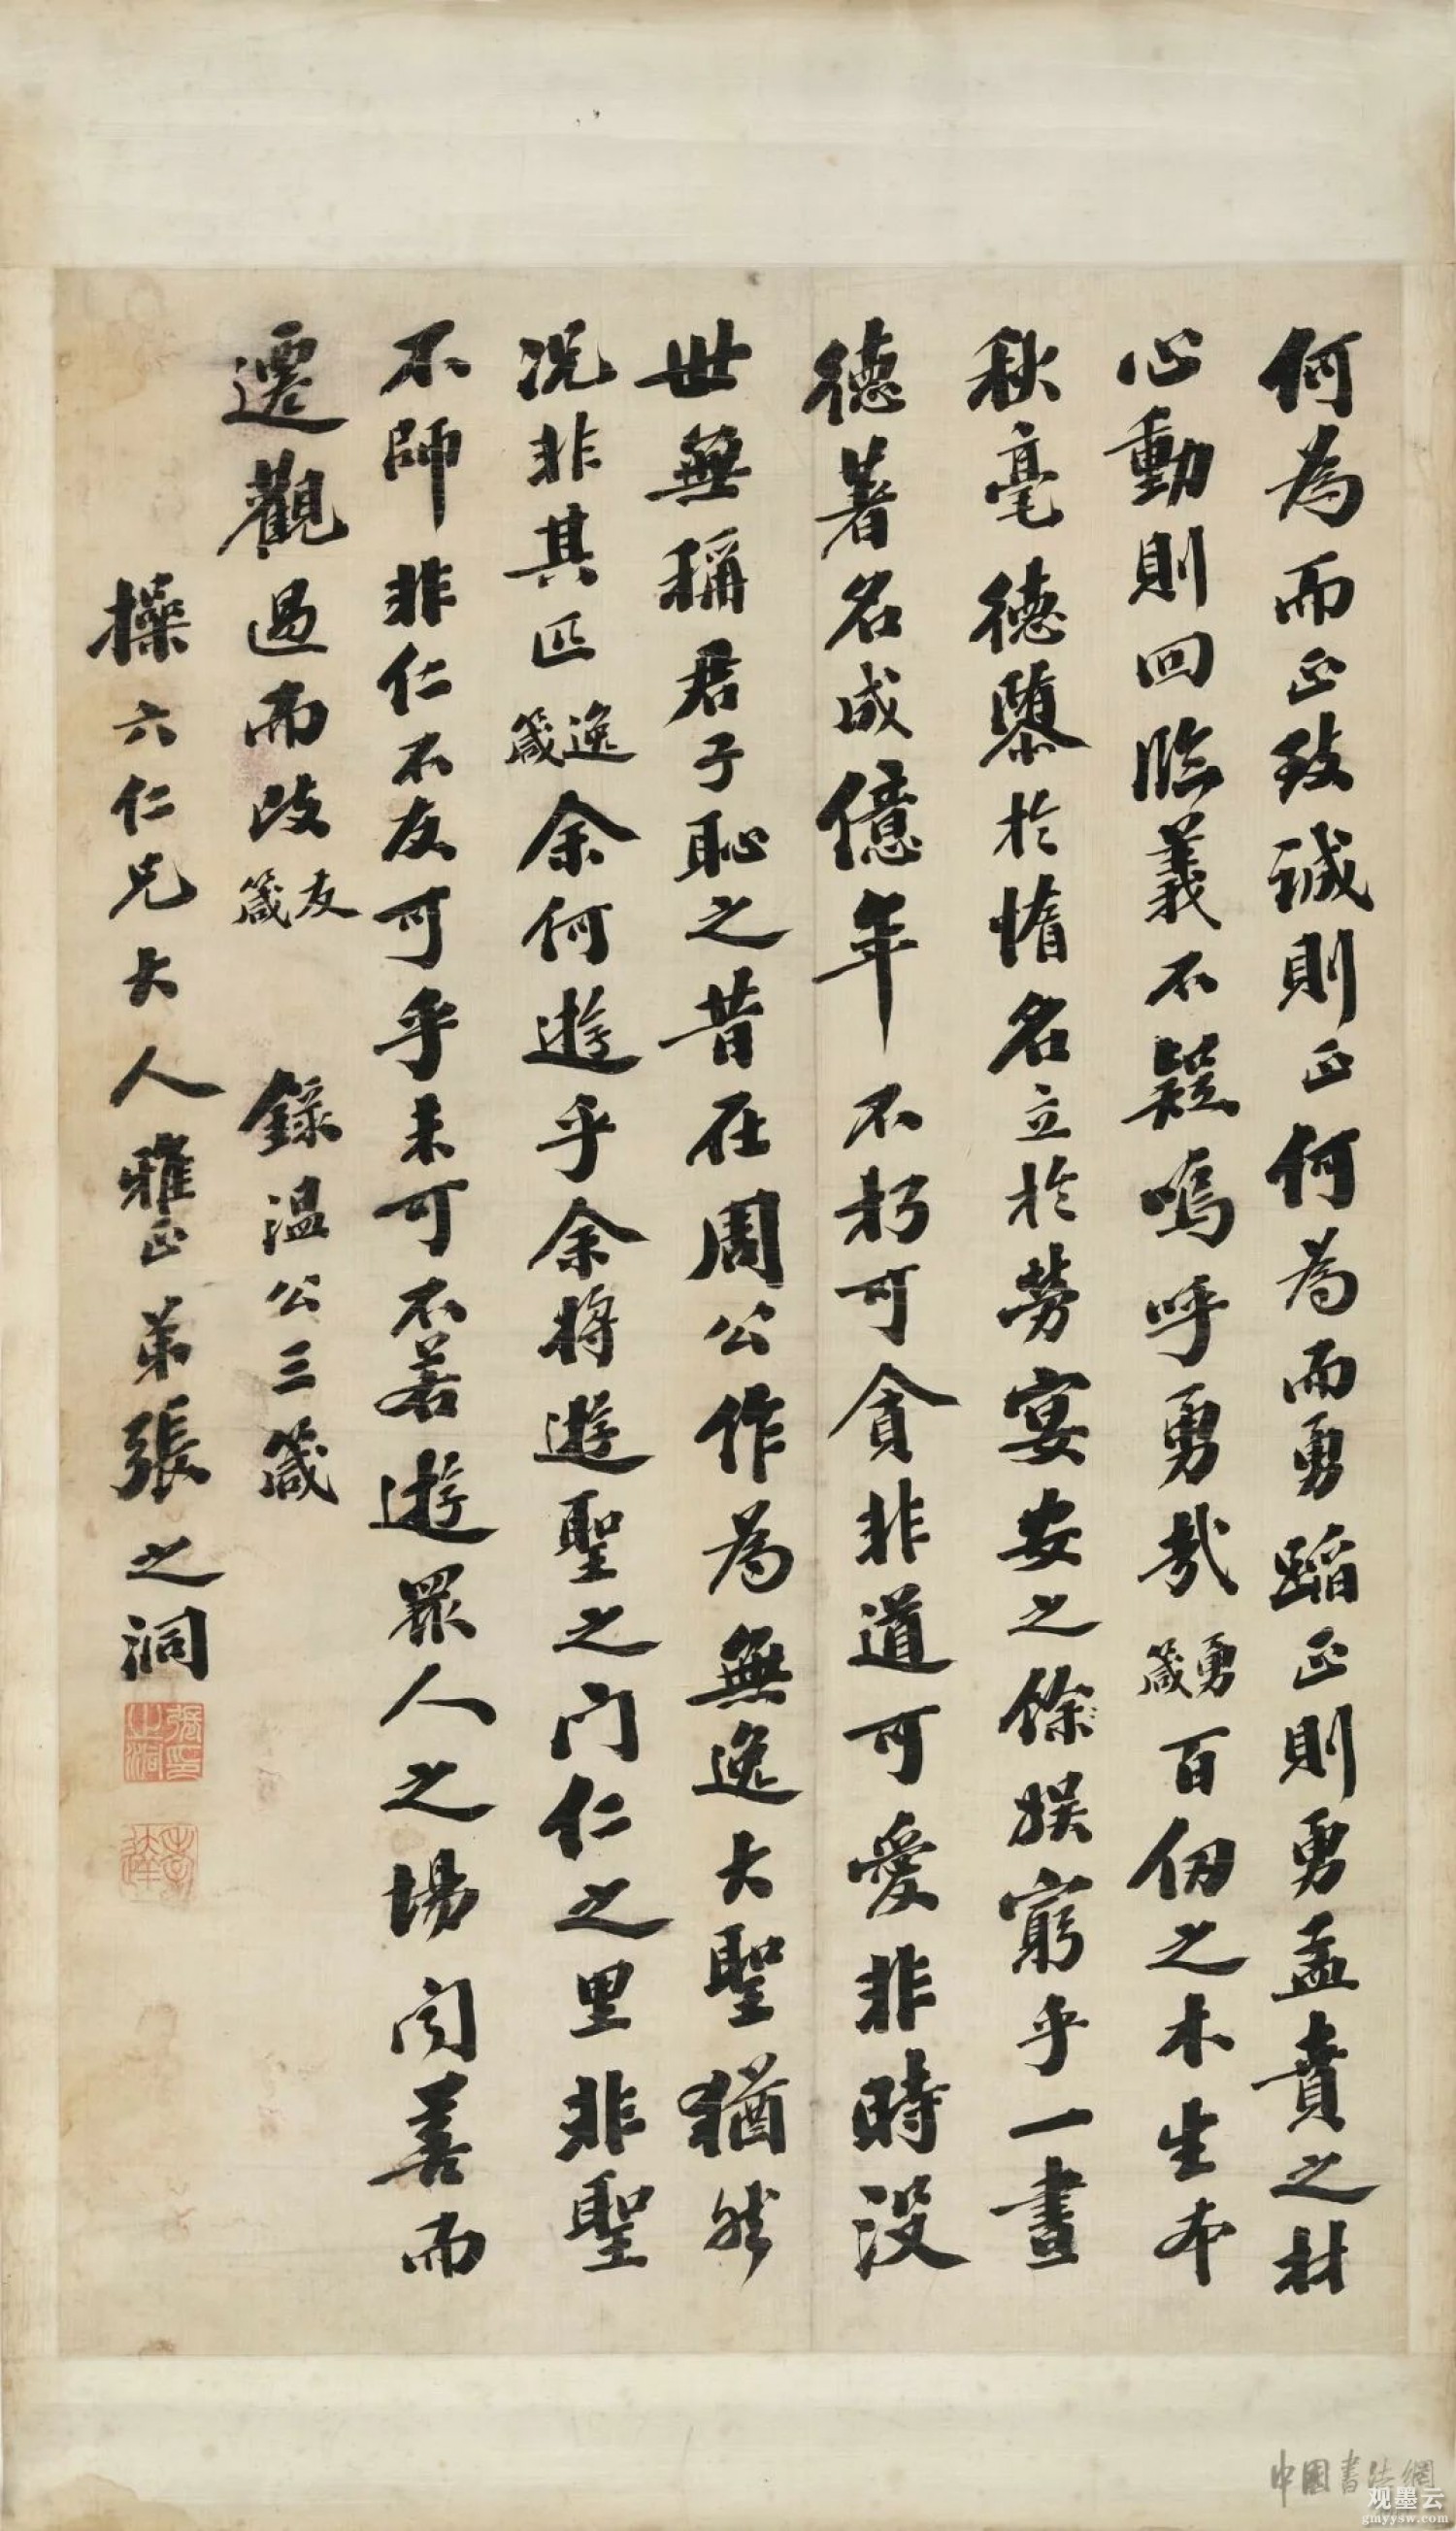 何為而正致誠則正何為而勇蹈正則勇孟賁之材
心動則回臨義不疑嗚呼勇哉勇箴百仞之木生本
秋毫德隳於惰名立於勞宴安之餘娛窮乎一晝
德著名成億年不朽可貪非道可愛非時没
世無稱君子恥之昔在周公作為無逸大聖猶然
況非其匹逸箴余何遊乎余將遊聖之門仁之里非聖
不師非仁不友可乎未可不若遊眾人之場聞善而
遷觀過而改友箴 錄溫公三箴
操六仁兄大人雅正弟張之洞
張之洞印
孝達
中国書法網
观墨云
gmyysw.com